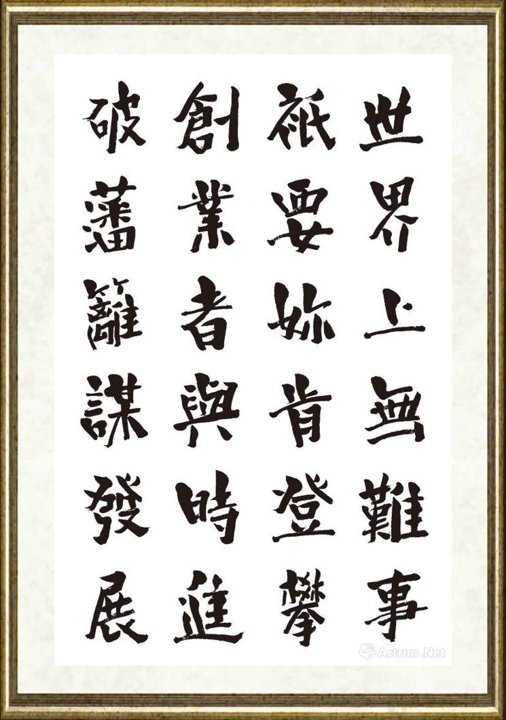 世界上無難事
祇要妳肯登攀
創業者與時進
破藩籬謀發展
Artron.Net